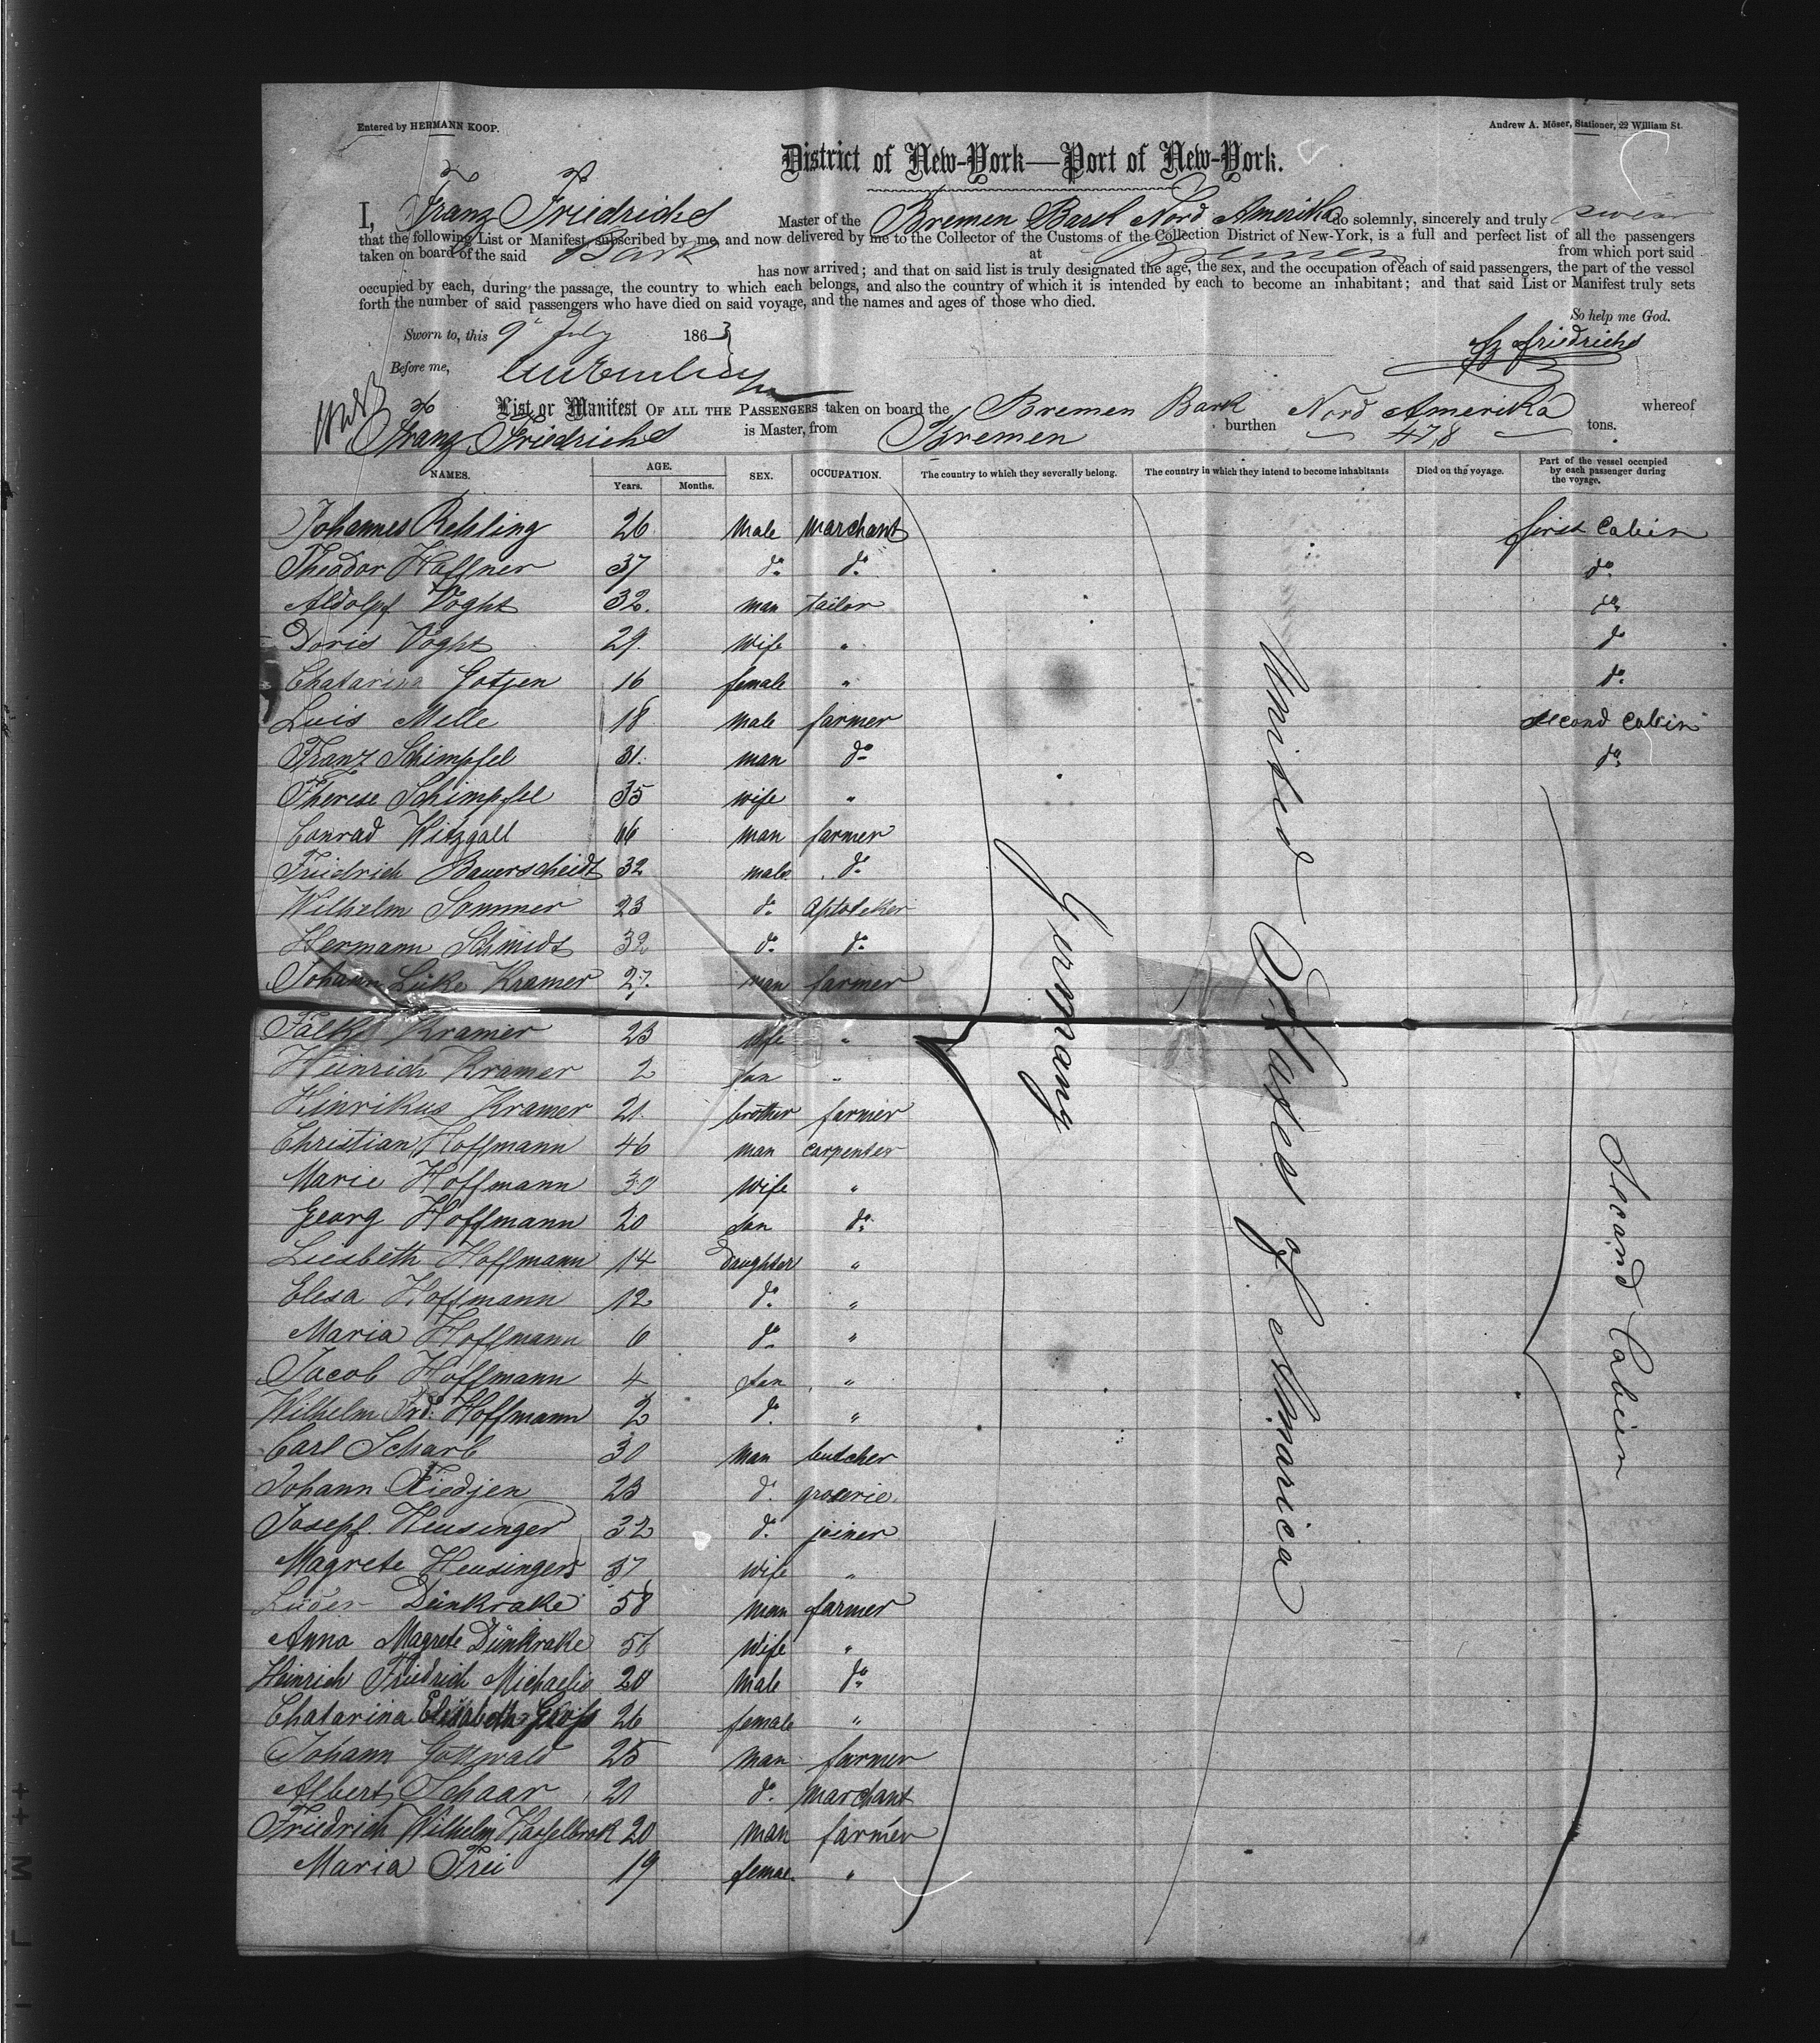 Entered by HERMANN KOOP.
Andrew A. Möser, Stationer, 22 William St.
District of New-York—Port of New-York.
I, Franz Friedrichs Master of the Bremen Bark Nord Amerika do solemnly, sincerely and truly swear
that the following List or Manifest, subscribed by me, and now delivered by me to the Collector of the Customs of the Collection District of New-York, is a full and perfect list of all the passengers
taken on board of the said Bark at Bremen from which port said
has now arrived; and that on said list is truly designated the age, the sex, and the occupation of each of said passengers, the part of the vessel
occupied by each, during the passage, the country to which each belongs, and also the country of which it is intended by each to become an inhabitant; and that said List or Manifest truly sets
forth the number of said passengers who have died on said voyage, and the names and ages of those who died.
So help me God.
Sworn to, this 9' July 1863
Fz Friedrichs
Before me,
List or Manifest OF ALL THE PASSENGERS taken on board the Bremen Bark Nord Amerika whereof
Franz Friedrichs is Master, from Bremen burthen 478 tons.
NAMES. AGE. Years. Months. SEX. OCCUPATION. The country to which they severally belong. The country in which they intend to become inhabitants Died on the voyage. Part of the vessel occupied by each passenger during the voyage.
Johannes Rehling 26 Male Marchant first Cabin
Theodor Haffner 37 do do do
Aldolpf Voght 32. man tailor do
Doris Voght 29. Wife " do
Chatarina Gotjen 16 female " do
Luis Melle 18 Male farmer second Cabin
Franz Schimpfel 31. man do do
Therese Schimpfel 35 wife "
Conrad Witzgall 16 man farmer
Friedrich Bauerscheidt 32 male do
Wilhelm Sommer 23 do Aptoteker
Hermann Schmidt 32 do do
Johann Lüke Kramer 27. man farmer
Falke Kramer 23 wife "
Heinrich Kramer 2 son "
Hinrikus Kramer 21. brother farmer
Christian Hoffmann 46 man carpenter
Marie Hoffmann 30 Wife "
Georg Hoffmann 20 son do
Liesbeth Hoffmann 14 Daughter "
Elesa Hoffmann 12 do "
Maria Hoffmann 6 do "
Jacob Hoffmann 4 son "
Wilhelm Frd: Hoffmann 2 do "
Carl Scharb 30 Man butcher
Johann Fiedjen 23 do groserie.
Josepf Heusinger 32 do joiner
Magrete Heusinger 37 Wife "
Lüder Dünkrake 58 man farmer
Anna Magrete Dünkrake 56 Wife "
Heinrich Friedrich Michaelis 20 Male do
Chatarina Elisabeth 26 female "
Johann Gottwald 25 Man farmer
Albert Schaar 21 do Marchant
Friedrich Wilhelm Hasselbrok 20 Man farmer
Maria Frei 19 femae. "
Germany
United States of Amarica
Second Cabin